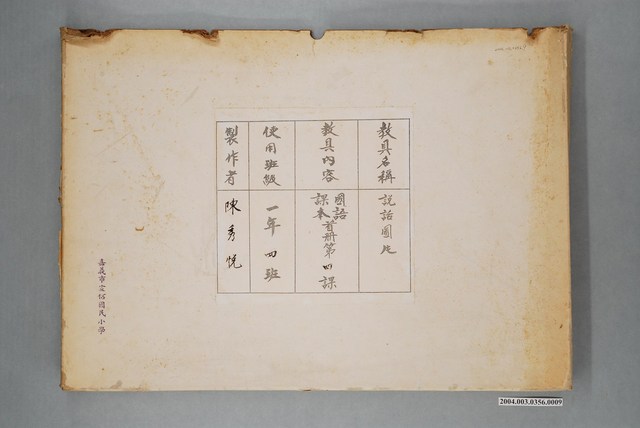 教具名稱
說話圖片
教具內容
國語
課本首冊第四課
使用班級
一年四班
製作者
陳秀悅
嘉義市宣信國民小學
2004.003.0356.0009